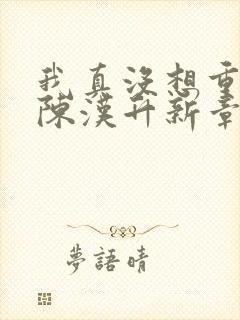 我真沒想重
陳漢升新章
夢語晴